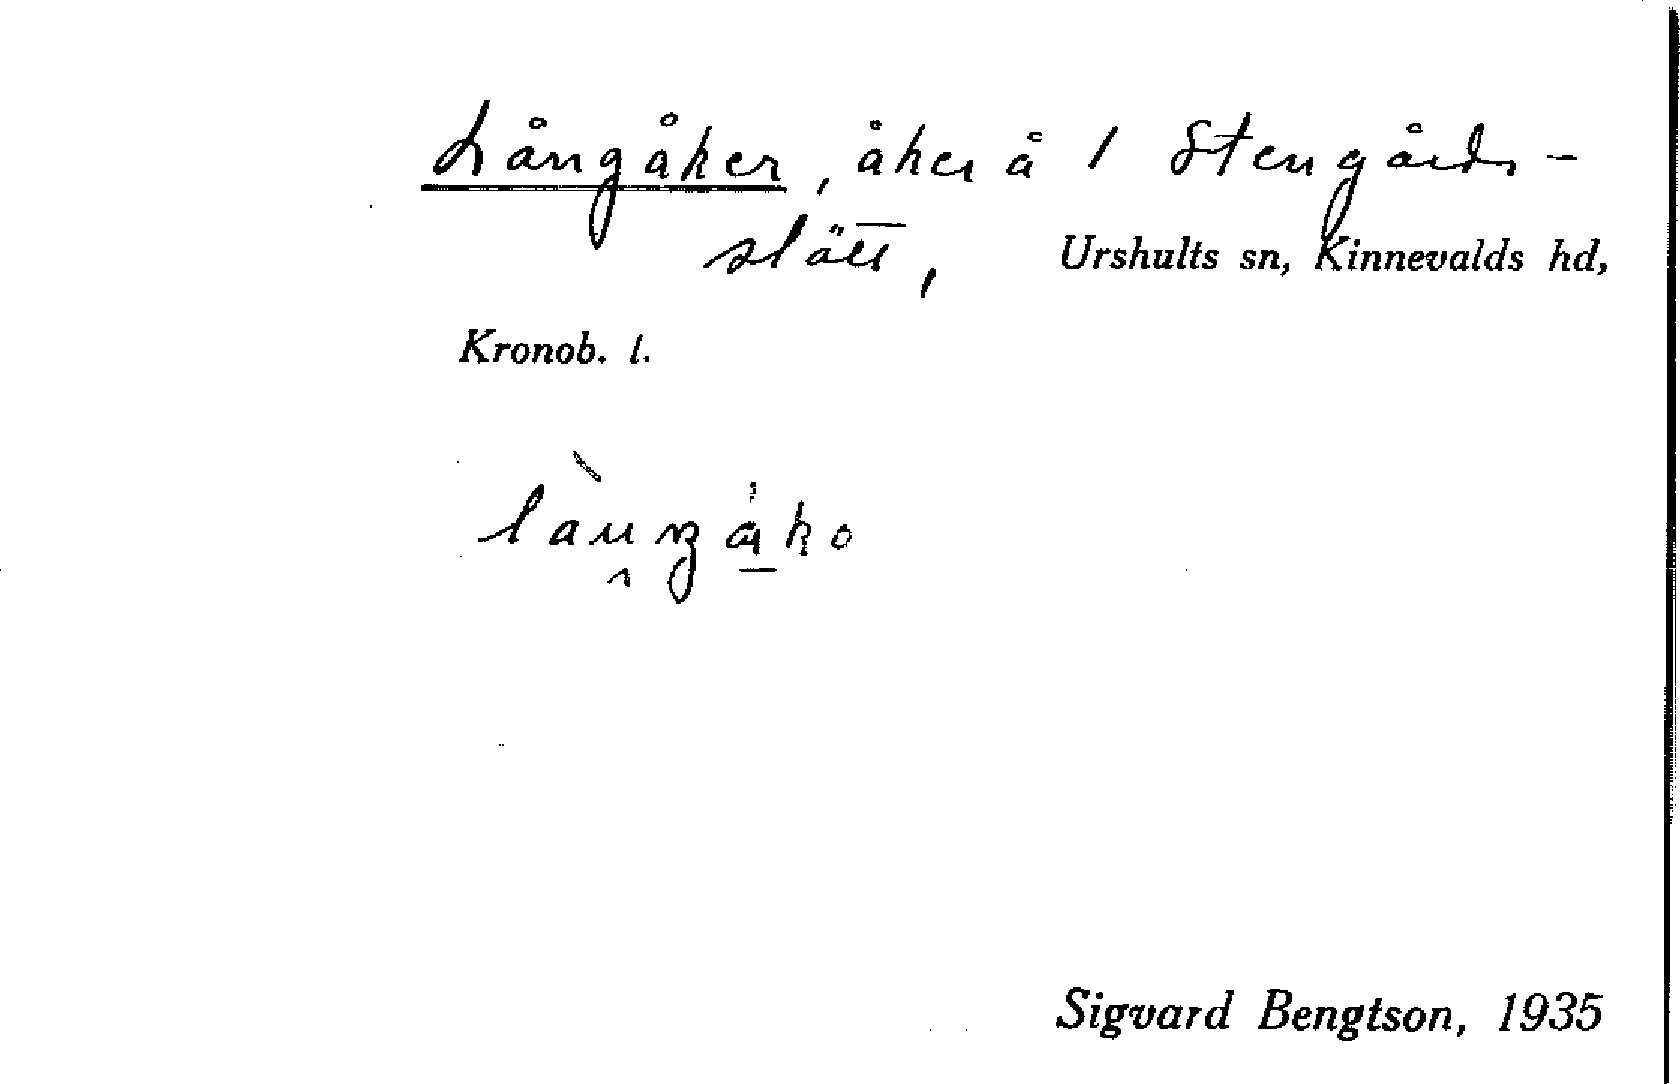 Långåker, åker å 1 Stengårds-
slätt, Urshults sn, Kinnevalds hd,
Kronob. l.
Sigvard Bengtson, 1935